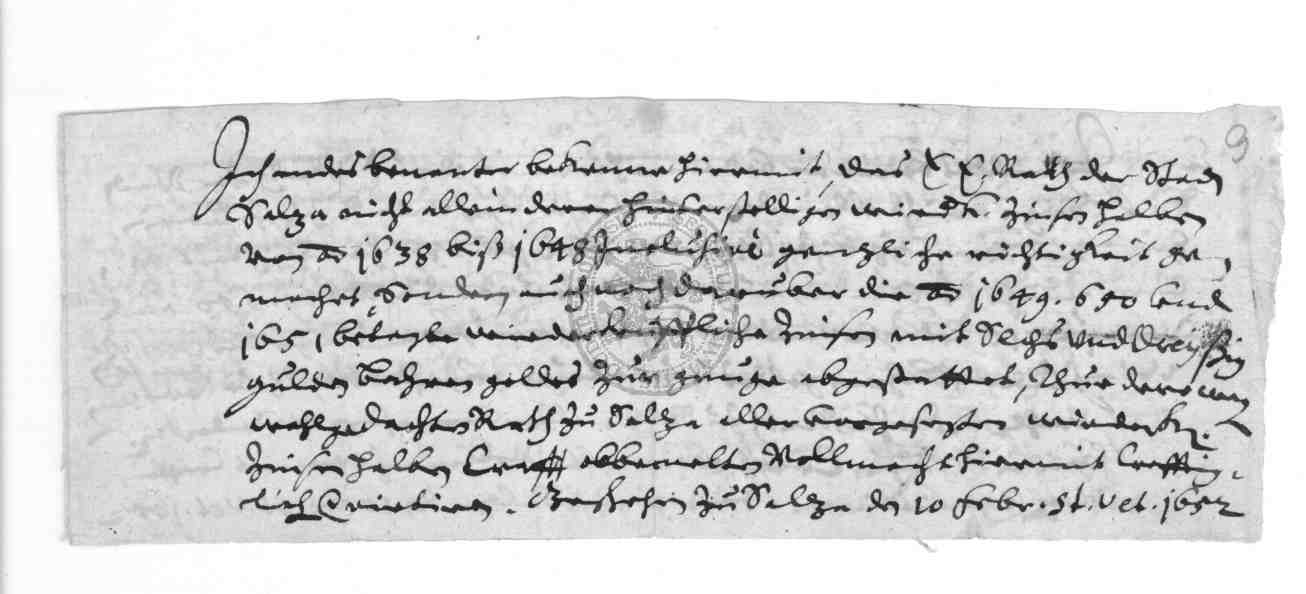 9
Ich endesbenanter bekenne hiermit, das E. E. Rath der Stad
Saltza nicht allein deren hinterstelligen wiederk. Zinsen halben
von ao 1638 biß 1648 Inclusivè gentzliche richtigkeit ge-
machet, Sondern auch noch darüber die ao 1649. 650 und
1651 betagte wiederkeuffliche Zinsen mit Sechs und Dreyßig
gülden bahren geldes zur genüge abgestattet, Thue derowegen
wohlgedachten Rath zu Saltza aller vorgesetzten wiederk.
Zinsen halben Crafft obbemelten Vollmacht hiermit Crefftig-
lich Qvietiren. Geschehen zu Saltza den 10 Febr. St. Vet. 1652